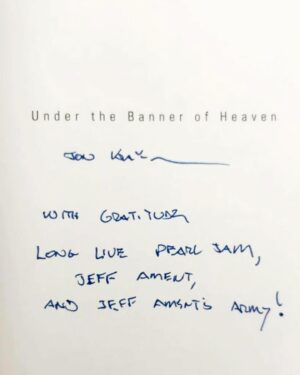 Under the Banner of Heaven
Jon
WITH GRATITUDE
LONG LIVE PEARL JAM,
JEFF AMENT,
AND JEFF AMENT'S ARMY!